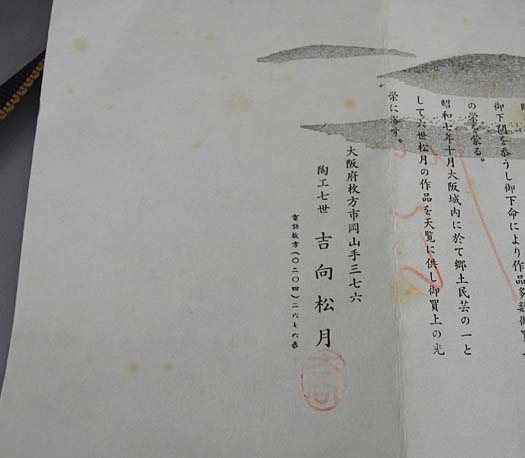 御下問を忝うし御下命により作品多数御買上
の栄を蒙る。
昭和七年十月大阪城内に於て郷土民芸の一と
して六世松月の作品を天覧に供し御買上の光
栄に浴す。
大阪府枚方市岡山手三七六
陶工七世 吉向松月
電話枚方(〇二〇四)二六七六番